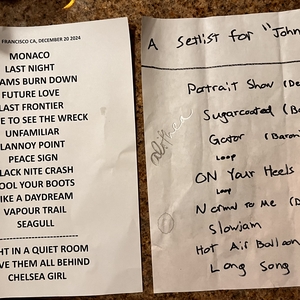 FRANCISCO CA, DECEMBER 20 2024
MONACO
LAST NIGHT
AMS BURN DOWN
FUTURE LOVE
LAST FRONTIER
E TO SEE THE WRECK
UNFAMILIAR
LANNOY POINT
PEACE SIGN
LACK NITE CRASH
OOL YOUR BOOTS
IKE A DAYDREAM
VAPOUR TRAIL
SEAGULL
HT IN A QUIET ROOM
VE THEM ALL BEHIND
CHELSEA GIRL
A Setlist for "John
Portrait Show (De
Sugarcoated (Ba
Gator (Baron
Loop
ON Your Heels
Loop
Normal to Me (D
Slowjam
Hot Air Balloon
Long Song